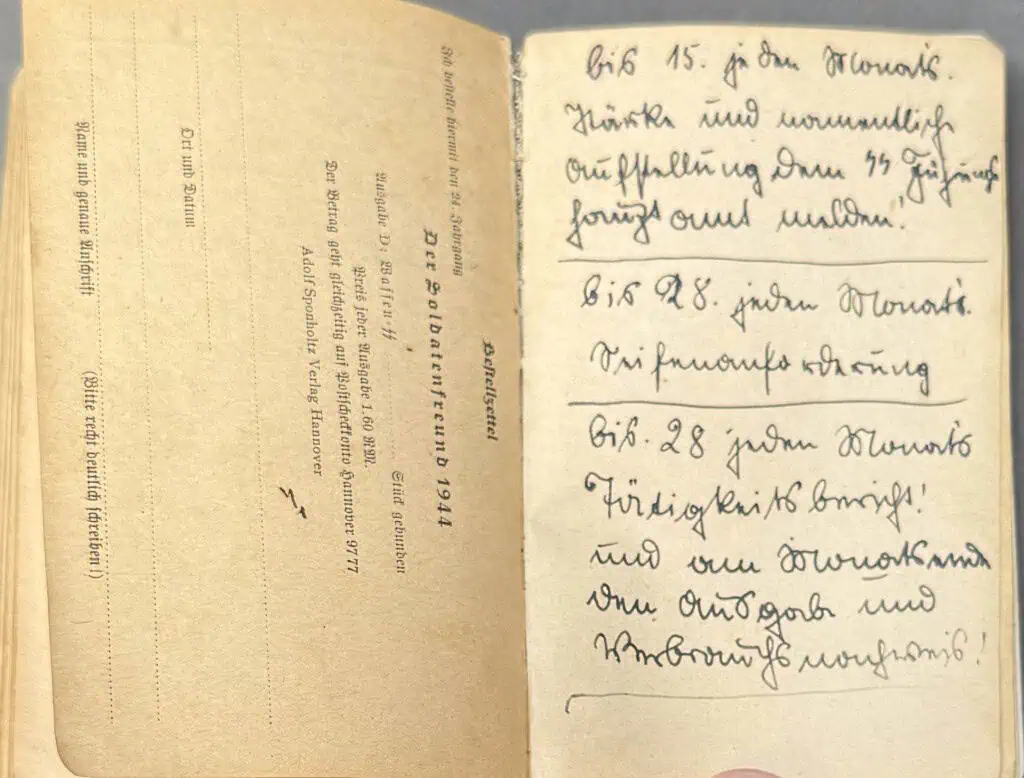 Bestellzettel
Ich bestelle hiermit den 24. Jahrgang
Der Soldatenfreund 1944
Ausgabe D: Waffen-ᛋᛋ ........ Stück gebunden
Preis jeder Ausgabe 1.60 RM.
Der Betrag geht gleichzeitig auf Postscheckkonto Hannover 9777
Adolf Sponholtz Verlag Hannover
Ort und Datum
Name und genaue Anschrift (Bitte recht deutlich schreiben!)
bis 15. jeden Monats.
Stärke und namentliche
Aufstellung dem ᛋᛋ Führungs
haupt amt melden!
bis 28. jeden Monats.
Seifenanforderung
bis. 28 jeden Monats
Tätigkeitsbericht!
und am Monatsende
den Ausgabe und
Verbrauchsnachweis!